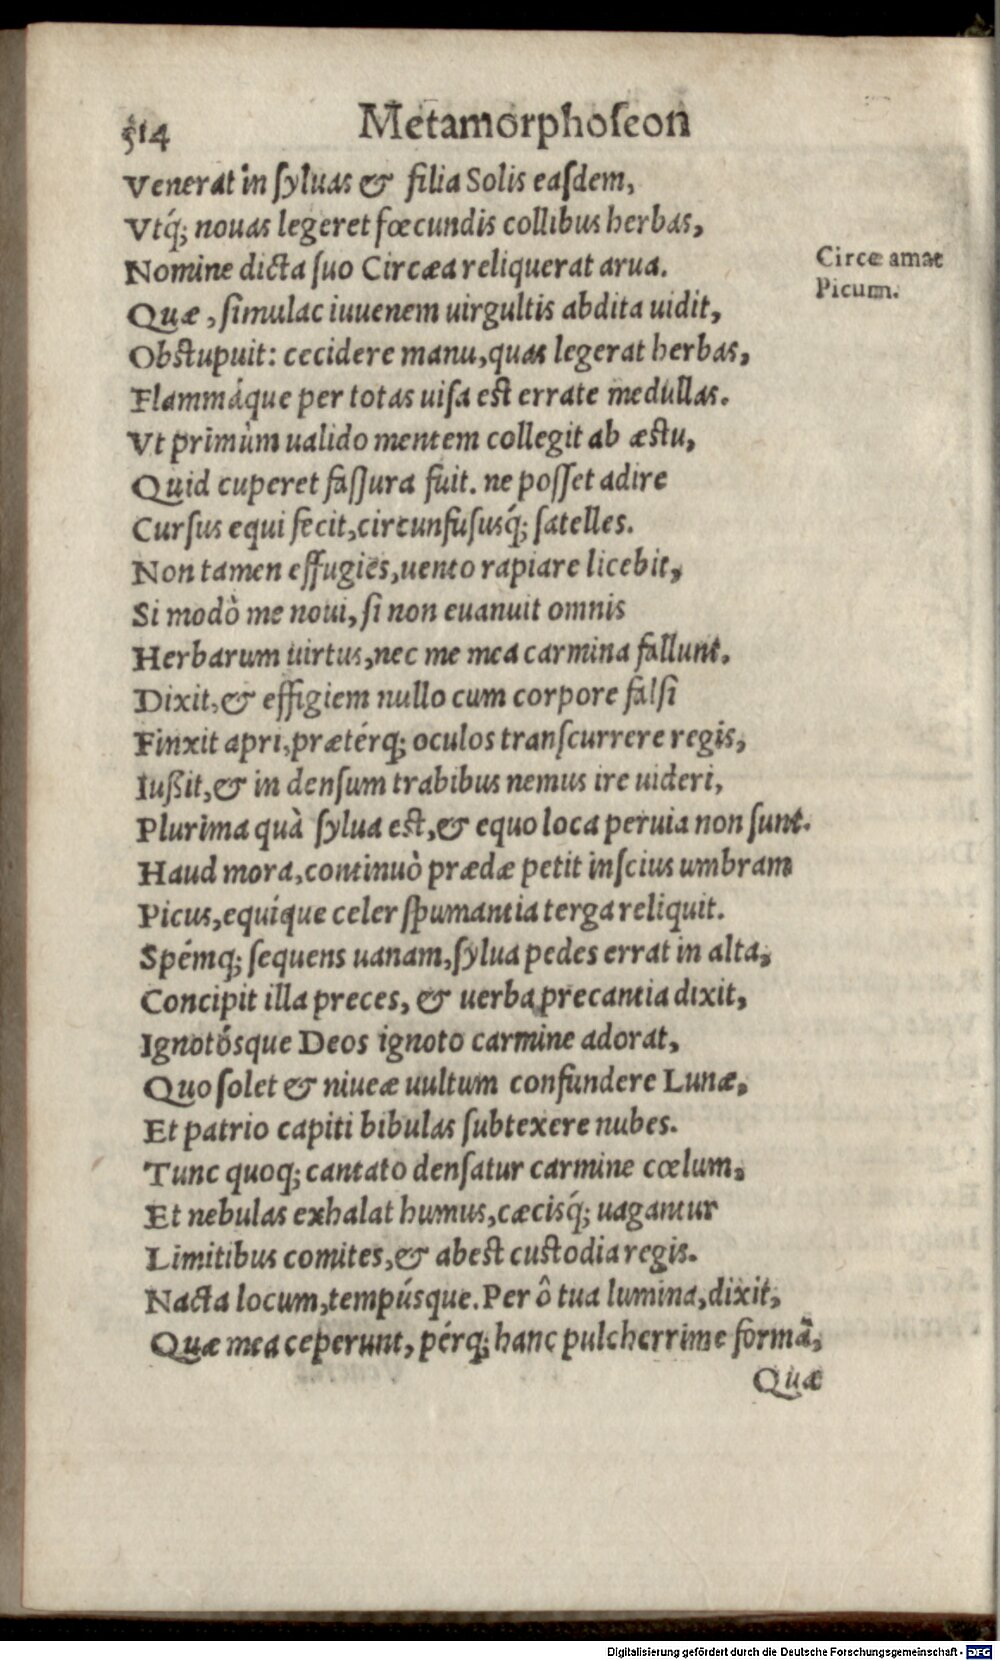 514 Metamorphoſeon
Venerat in ſyluas & filia Solis eaſdem,
Vtq́; nouas legeret fœcundis collibus herbas,
Nomine dicta ſuo Circæa reliquerat arua.
Circe amat
Picum.
Quæ, ſimulac iuuenem uirgultis abdita uidit,
Obſtupuit: cecidere manu, quas legerat herbas,
Flammáque per totas uiſa eſt errate medullas.
Vt primùm ualido mentem collegit ab æſtu,
Quid cuperet faſſura fuit. ne poſſet adire
Curſus equi fecit, circunfuſusq́; ſatelles.
Non tamen effugies, uento rapiare licebit,
Si modò me noui, ſi non euanuit omnis
Herbarum uirtus, nec me mea carmina fallunt.
Dixit, & effigiem nullo cum corpore falſi
Finxit apri, prætérq; oculos tranſcurrere regis,
Iußit, & in denſum trabibus nemus ire uideri,
Plurima quà ſylua eſt, & equo loca peruia non ſunt.
Haud mora, continuò prædæ petit inſcius umbram
Picus, equíque celer ſpumantia terga reliquit.
Spémq; ſequens uanam, ſylua pedes errat in alta,
Concipit illa preces, & uerba precantia dixit,
Ignotósque Deos ignoto carmine adorat,
Quo ſolet & niueæ uultum confundere Lunæ,
Et patrio capiti bibulas ſubtexere nubes.
Tunc quoq; cantato denſatur carmine cœlum,
Et nebulas exhalat humus, cæcisq́; uagantur
Limitibus comites, & abeſt cuſtodia regis.
Nacta locum, tempúsque. Per ô tua lumina, dixit,
Quæ mea ceperunt, pérq; hanc pulcherrime formã,
Quæ
Digitalisierung gefördert durch die Deutsche Forschungsgemeinschaft - DFG